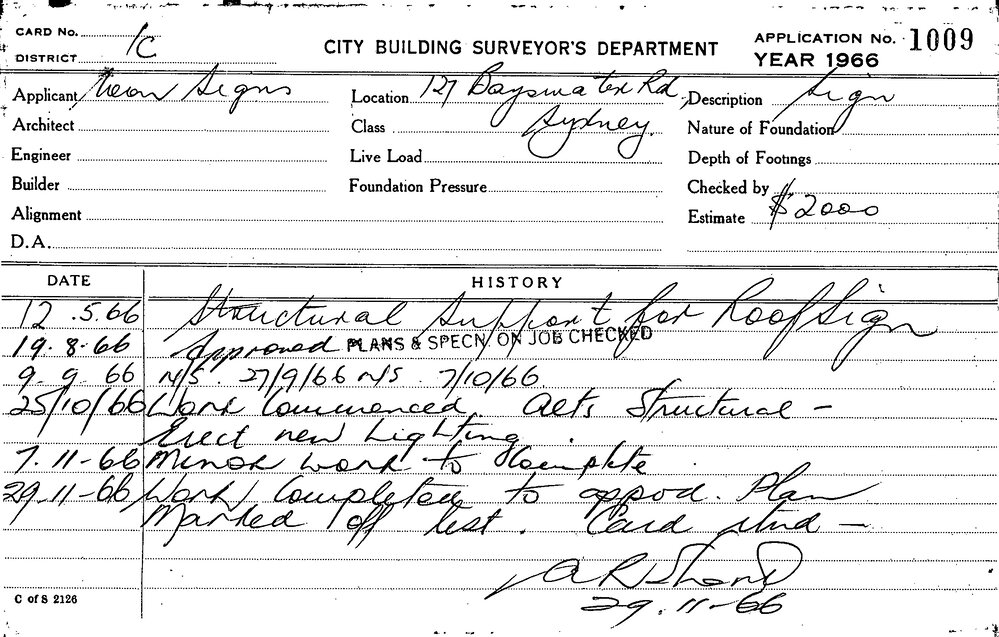 CARD No.
DISTRICT 1C
CITY BUILDING SURVEYOR'S DEPARTMENT
APPLICATION No. 1009
YEAR 1966
Applicant Neon Signs
Location 127 Bayswater Rd, Sydney.
Description Sign
Architect
Class
Nature of Foundation
Engineer
Live Load
Depth of Footings
Builder
Foundation Pressure
Checked by
Alignment
Estimate $2000
D.A.
DATE HISTORY
12.5.66 Structural Support for Roof Sign
19.8.66 Approved PLANS & SPECN/ ON JOB CHECKED
9.9.66 N/S. 27/9/66 N/S. 7/10/66
25/10/66 Work Commenced. Structural –
Erect new Lighting.
7.11-66 Minor work to Complete
29.11-66 Work Completed to appod. Plan
Marked off list. Card –
29.11-66
C of S 2126